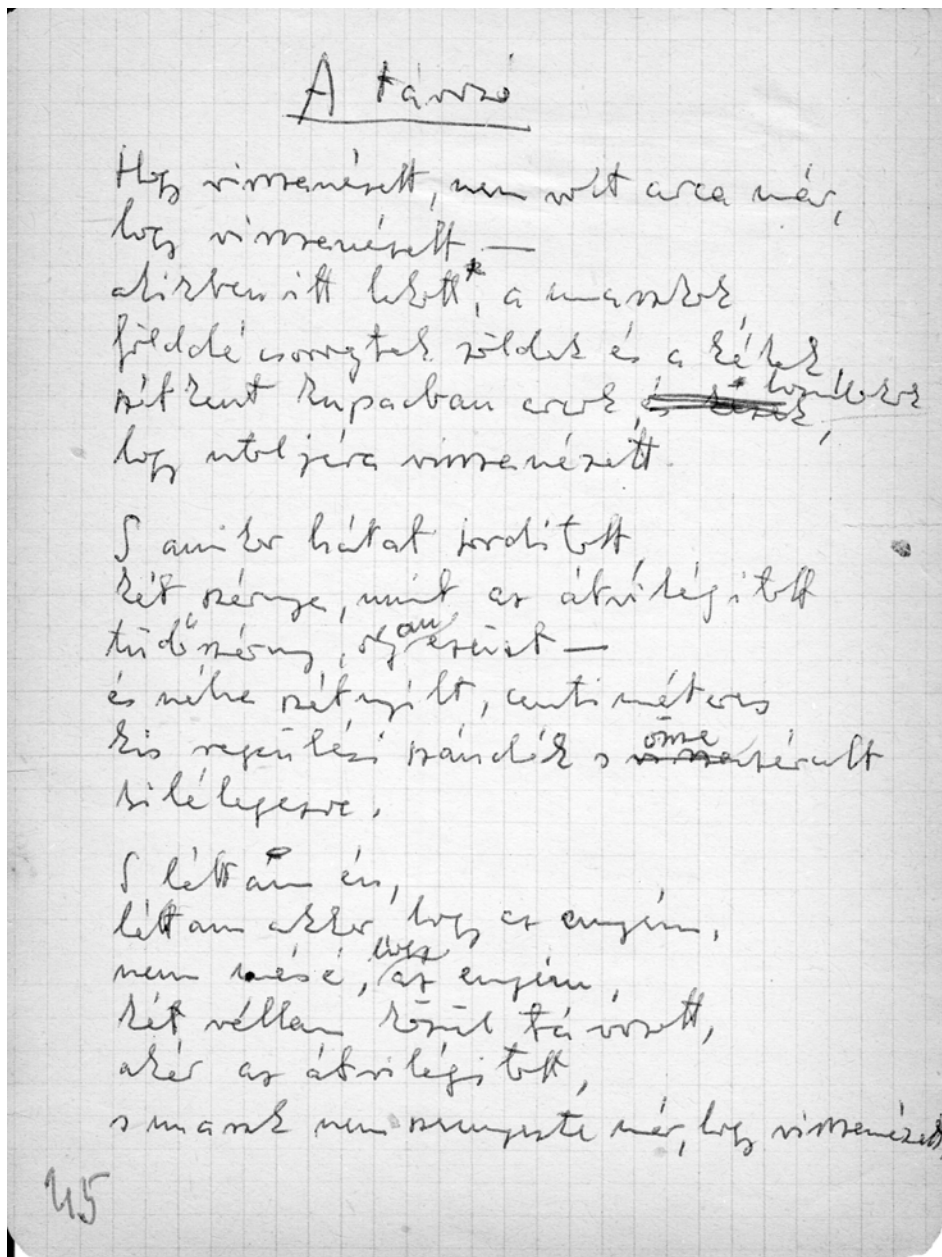 A távozó
Hogy visszanézett, nem volt arca már,
hogy visszanézett —
akikben itt lakott, a maszkok,
földdé csorogtak zöldek és a kékek
szétkent kupacban arcok, homlokok,
hogy utoljára visszanézett.
S amikor hátat fordított,
két szárnya, mint az átvilágított
tüdőszárny, olyan ezüst —
és néha szétnyílt, centiméteres
kis repülési szándék s összezárult
kilélegezve.
S láttam én,
láttam akkor, hogy az enyém,
nem másé, hogy az enyém,
két vállam közül távozott,
akár az átvilágított,
s maszk nem szennyezte már, hogy visszanézett.
45